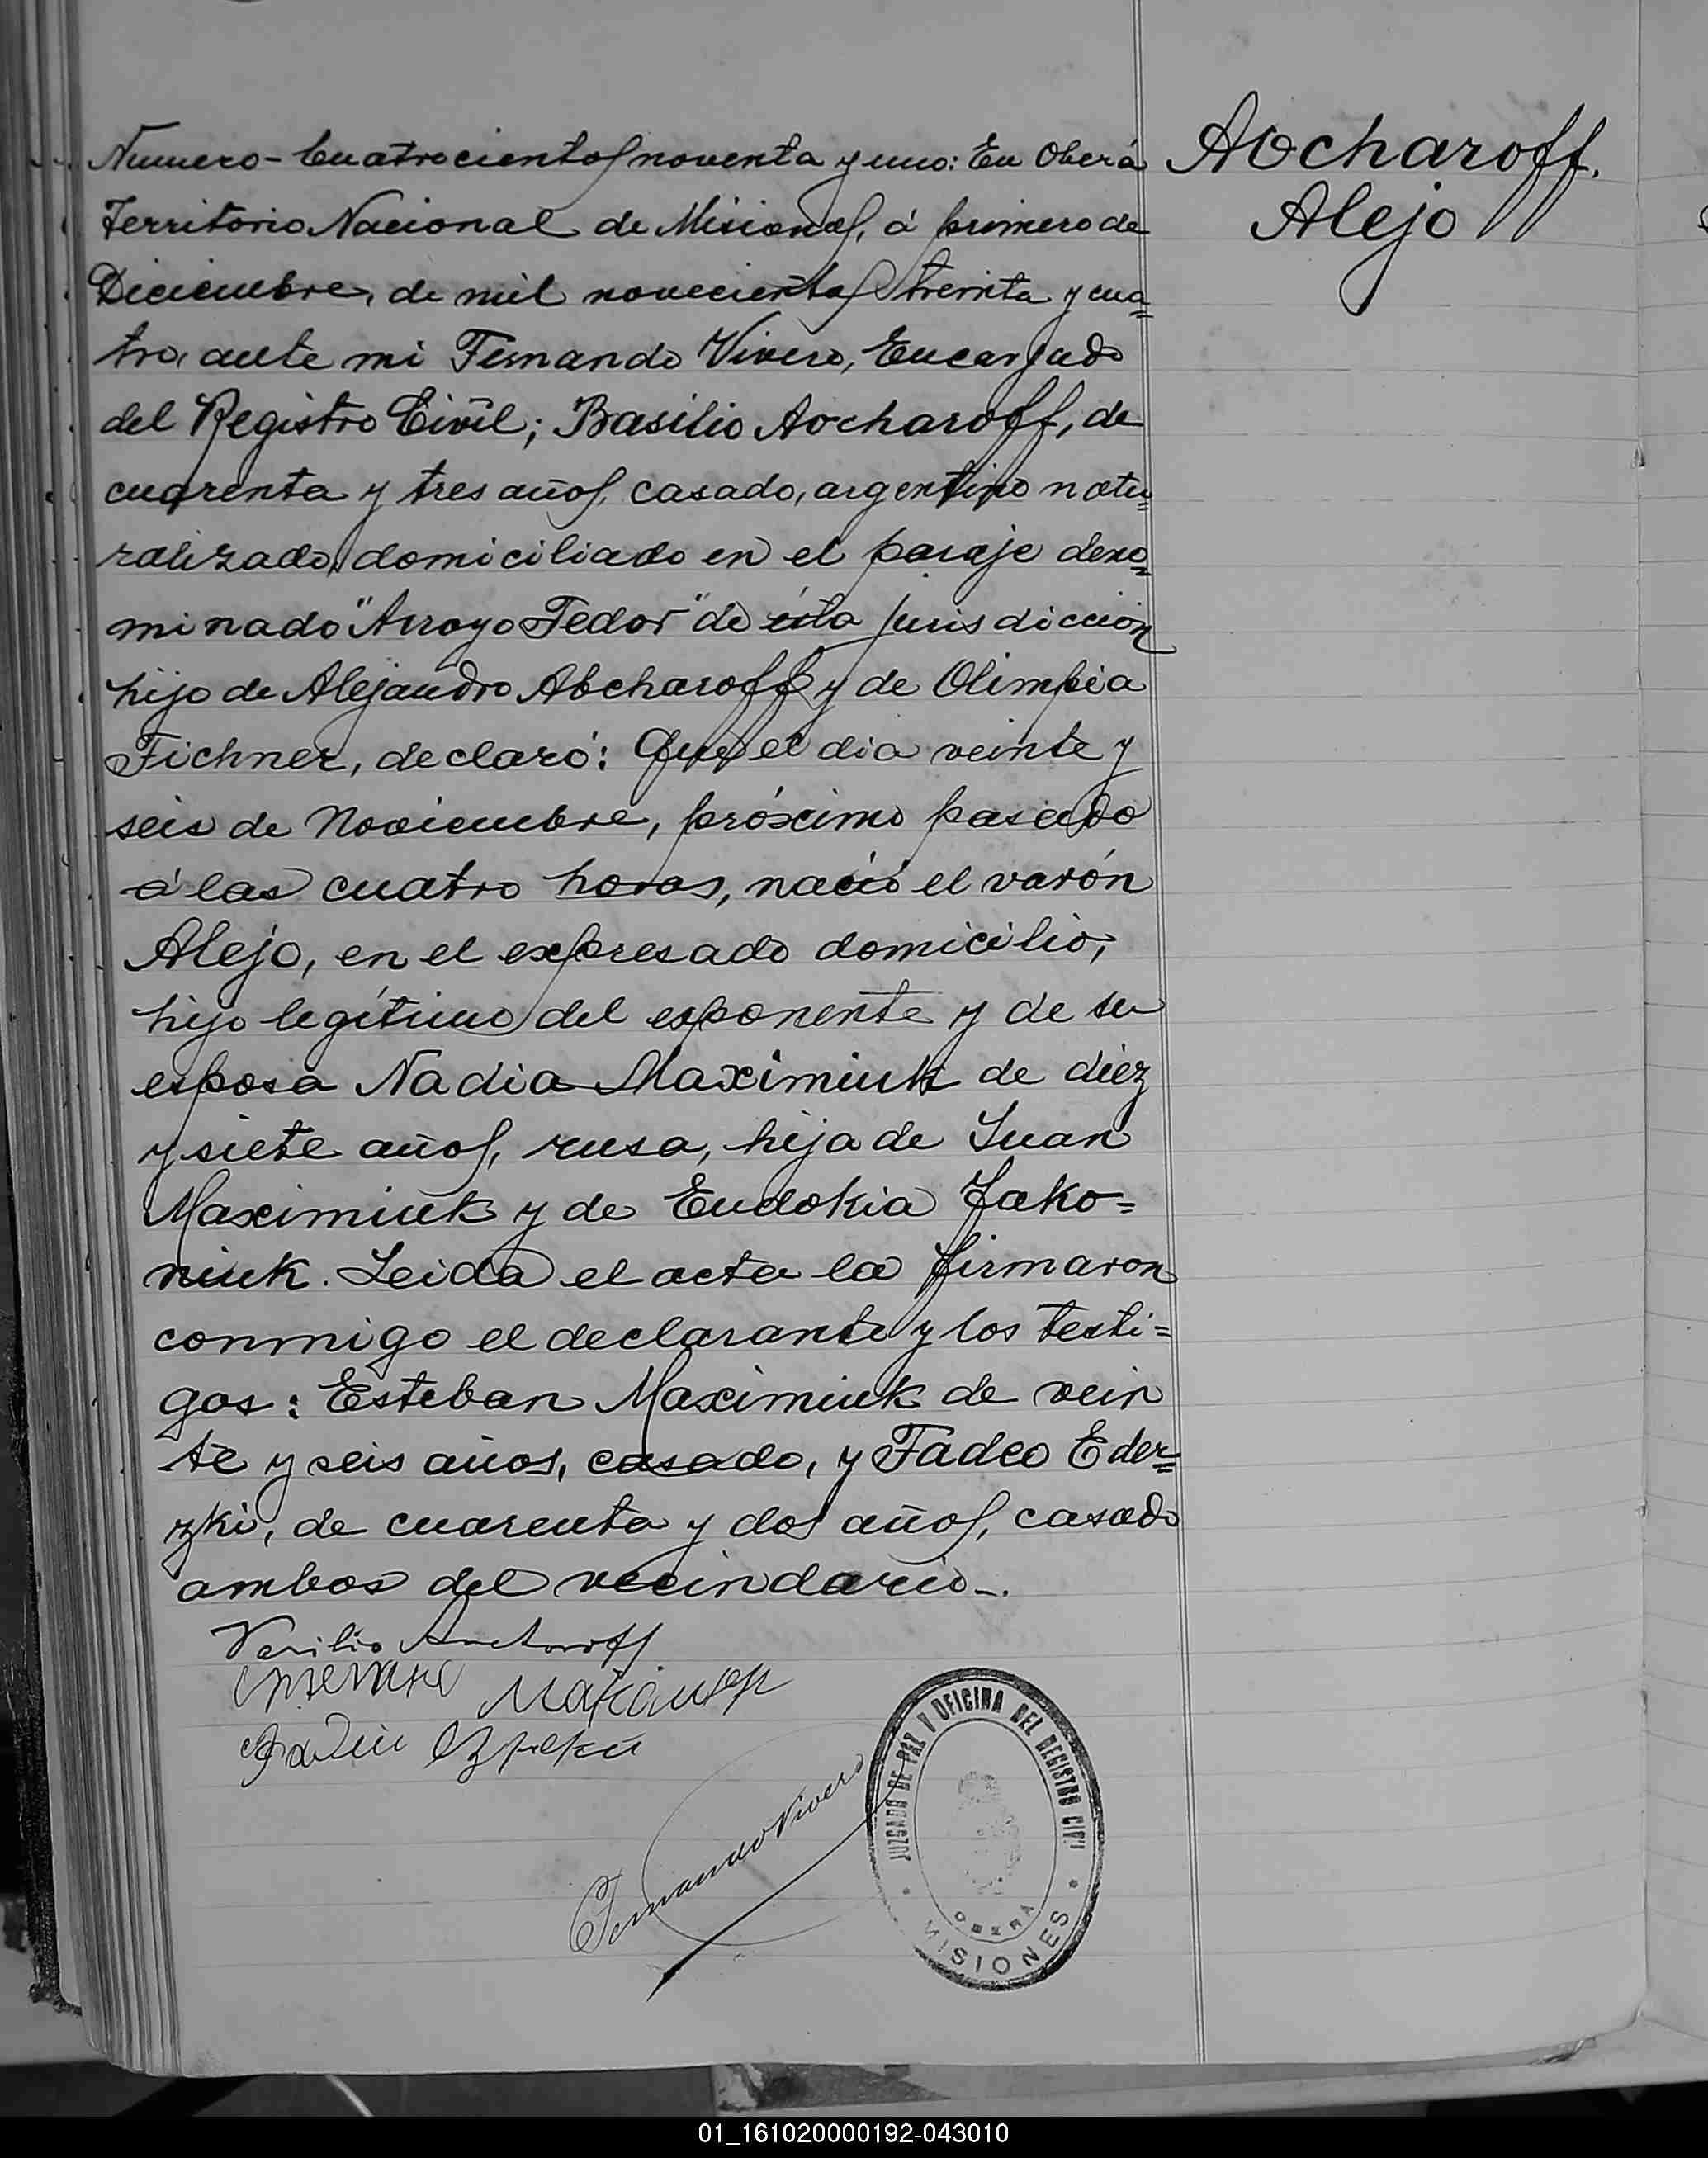 Aocharoff.
Alejo
Numero - Cuatrocientos noventa y uno: En Oberá
Territorio Nacional de Misiones, á primero de
Diciembre, de mil novecientos treinta y cua=
tro, ante mi Fernando Vivero, Encargado
del Registro Civil; Basilio Aocharoff, de
cuarenta y tres años, casado, argentino natu=
ralizado, domiciliado en el paraje deno=
minado "Arroyo Fedor" de ésta jurisdicción
hijo de Alejandro Abcharoff y de Olimpia
Fichner, declaró: Que el dia veinte y
seis de Noviembre, próximo pasado
á las cuatro horas, nació el varón
Alejo, en el expresado domicilio,
hijo legítimo del esponente y de su
esposa Nadia Maximiuk de diez
y siete años, rusa, hija de Juan
Maximiuk y de Eudokia Jako=
niuk. Leida el acta la firmaron
conmigo el declarante y los testi=
gos: Esteban Maximiuk de vein
te y seis años, casado, y Fadeo Eder=
zki, de cuarenta y dos años, casado
ambos del vecindario -.
Vasilio
Fernando Vivero
JUZGADO DE PAZ Y OFICINA DEL REGISTRO CIVIL
OBERA
MISIONES
01_161020000192-043010